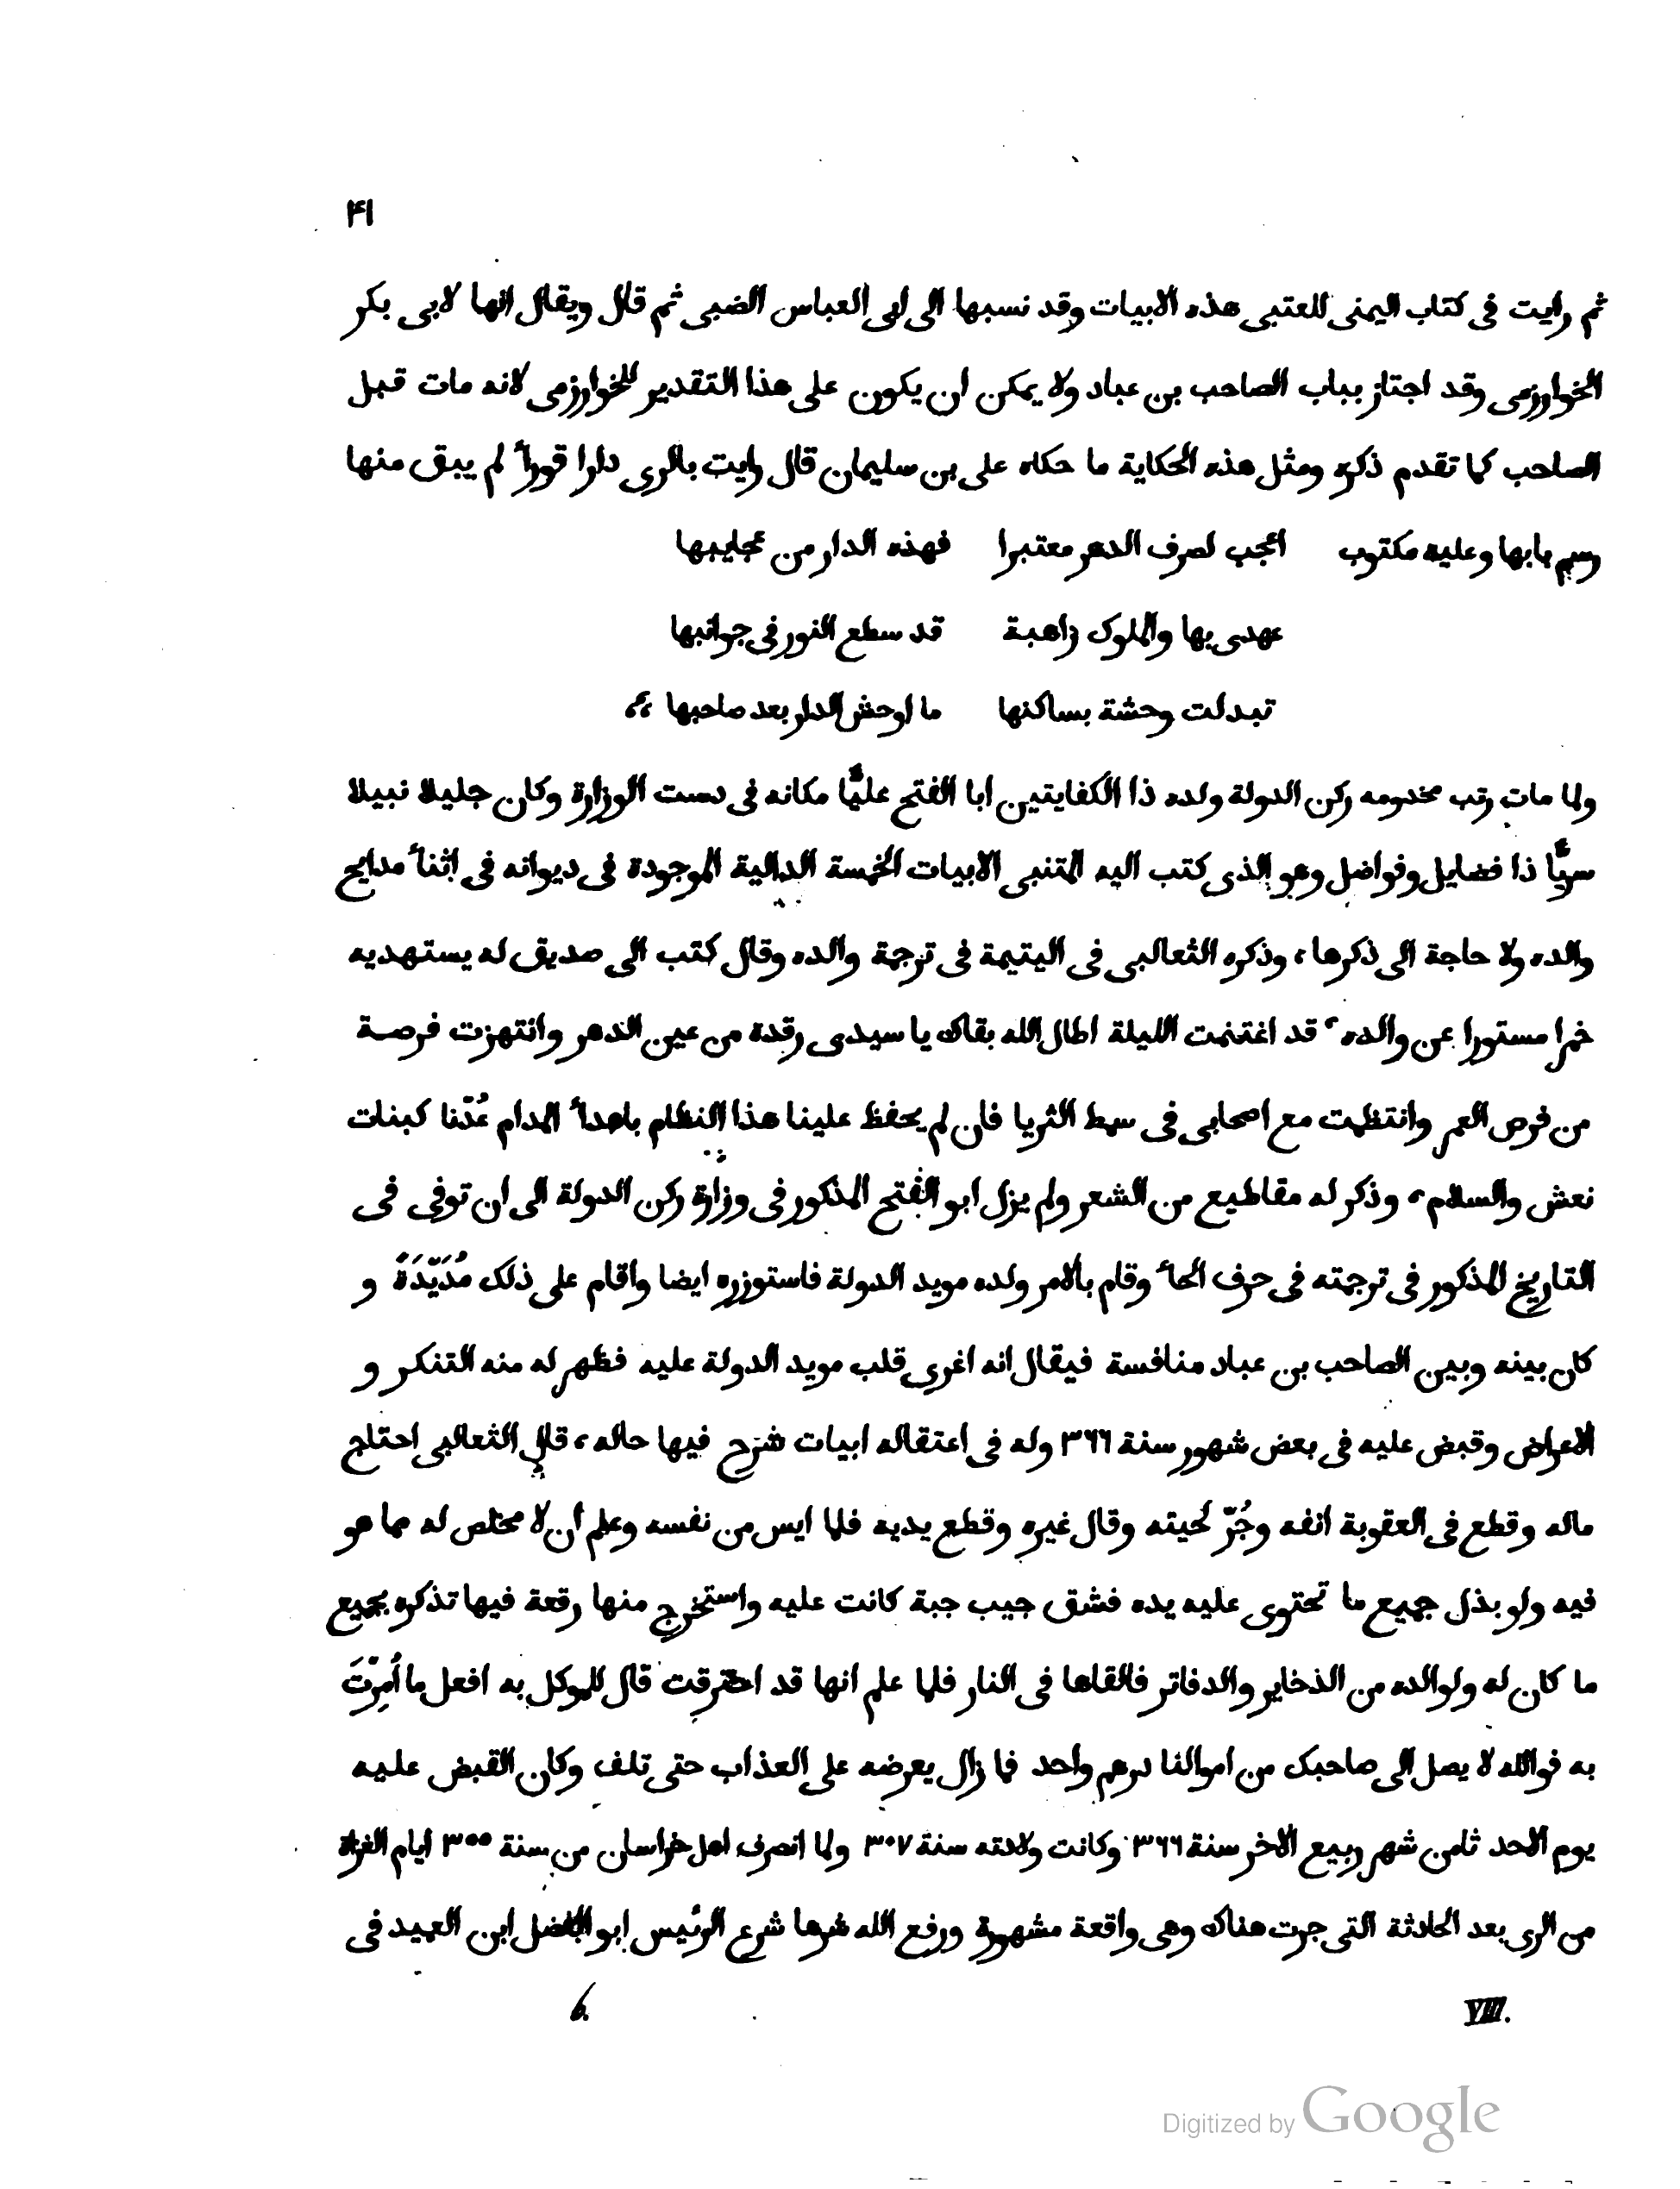 ۴۱
ثم رايت فى كتاب اليمنى للعتبى هذه الابيات وقد نسبها الى ابى العباس الضبى ثم قال ويقال انها لابى بكر
الخوارزمى وقد اجتاز بباب الصاحب بن عباد ولا يمكن ان يكون على هذا التقدير للخوارزمى لانه مات قبل
الصاحب كما تقدم ذكره ومثل هذه الحكاية ما حكاه على بن سليمان قال رايت بالرى دارا قورأ لم يبق منها
رسم بابها وعليه مكتوب اعجب لصرف الدهر معتبرا فهذه الدار من عجايبها
عهدى بها والملوك زاهبة قد سطع النور فى جوانبها
تبدلت وحشة بساكنها ما اوحش الدار بعد صاحبها
ولما مات رتب مخدومه ركن الدولة ولده ذا الكفايتين ابا الفتح عليًّا مكانه فى دست الوزارة وكان جليلا نبيلا
سريًّا ذا فضايل وفواضل وهو الذى كتب اليه المتنبى الابيات الخمسة الدالية الموجودة فى ديوانه فى اثنأ مدايح
والده ولا حاجة الى ذكرها، وذكره الثعالبى فى اليتيمة فى ترجمة والده وقال كتب الى صديق له يستهديه
خمرا مستورا عن والده، قد اغتنمت الليلة اطال الله بقاك يا سيدى رقدة من عين الدهر وانتهزت فرصة
من فرص العمر وانتظمت مع اصحابى فى سمط الثريا فان لم يحفظ علينا هذا النظام باهدأ المدام عُدّنا كبنات
نعش والسلام، وذكر له مقاطيع من الشعر ولم يزل ابو الفتح المذكور فى وزارة ركن الدولة الى ان توفى فى
التاريخ المذكور فى ترجمته فى حرف الحأ وقام بالامر ولده مويد الدولة فاستوزره ايضا واقام على ذلك مُدَيّدَةً و
كان بينه وبين الصاحب بن عباد منافسة فيقال انه اغرى قلب مويد الدولة عليه فظهر له منه التنكر و
الاعراض وقبض عليه فى بعض شهور سنة ٣٦٦ وله فى اعتقاله ابيات شرح فيها حاله، قال الثعالبى احتاج
ماله وقطع فى العقوبة انفه وجُزّ لحيته وقال غيره وقطع يديه فلما ايس من نفسه وعلم أن لا مخلص له مما هو
فيه ولو بذل جميع ما تحتوى عليه يده فشق جيب جبة كانت عليه واستخرج منها رقعة فيها تذكره بجميع
ما كان له ولوالده من الذخاير والدفاتر فالقاها فى النار فلما علم انها قد احترقت قال للموكل به افعل ما أُمِرْتَ
به فوالله لا يصل الى صاحبك من اموالنا درهم واحد فما زال يعرضه على العذاب حتى تلف وكان القبض عليه
يوم الاحد ثامن شهر ربيع الاخر سنة ٣٦٦ وكانت ولادته سنة ٣٠٧ ولما انصرف اهل خراسان من سنة ٣٥٥ ايام الغزاة
من الرى بعد الحادثة التى جرت هناك وهى واقعة مشهورة ورفع الله شرها شرع الرئيس ابو الفضل ابن العميد فى
VIII.
6.
Digitized by Google